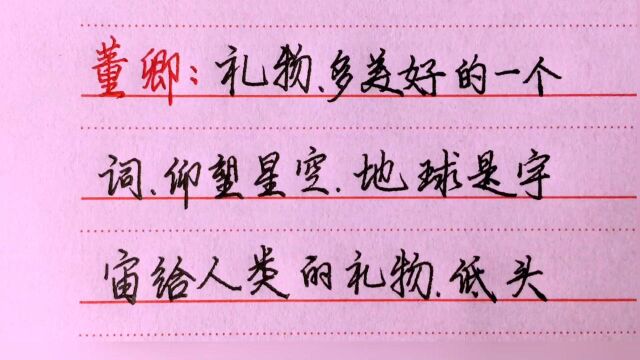 董卿:礼物、多美好的一个
词、仰望星空、地球是宇
宙给人类的礼物、低头